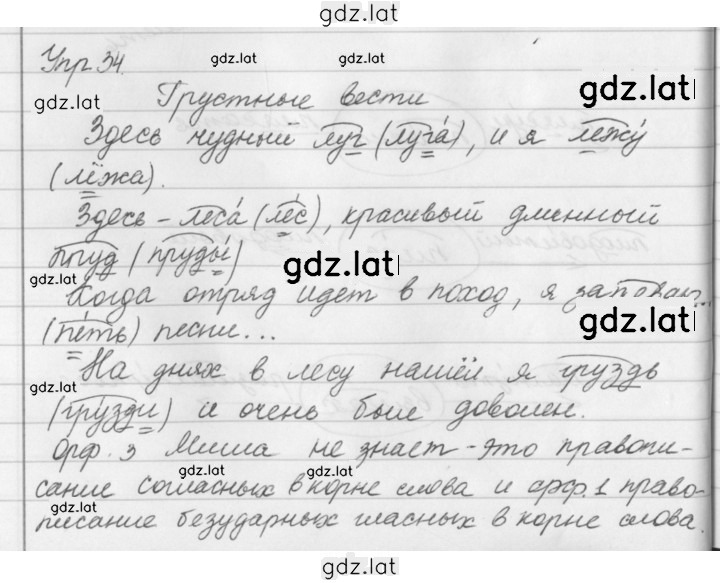 gdz.lat
Упр 34.
gdz.lat gdz.lat
gdz.lat
gdz.lat
Грустные вести
Здесь чудный луг (луга́), и я лежу́
(лёжа).
Здесь - леса́ (лес), красивый длинный
пруд (пруды́)
gdz.lat
gdz.lat
Когда отряд идет в поход, я заповаю...
gdz.lat
(петь) песни...
На днях в лесу нашёл я груздь
gdz.lat
(грузди) и очень был доволен.
Орф. 3 Миша не знает - это правопи-
gdz.lat gdz.lat
сание согласных в корне слова и орф. 1 право-
gdz.lat
писание безударных гласных в корне слова.
gdz.lat